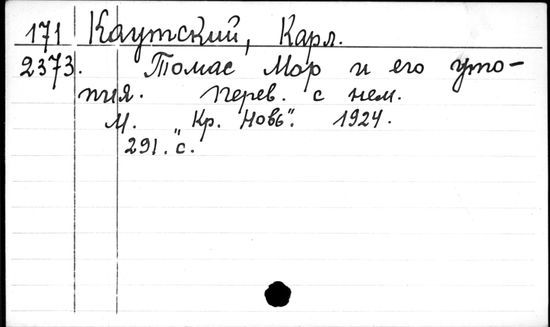 171 Каутский, Карл.
2373. Томас Мор и его уто-
пия. Перев. с нем.
М. „Кр. Новь". 1924.
291. с.